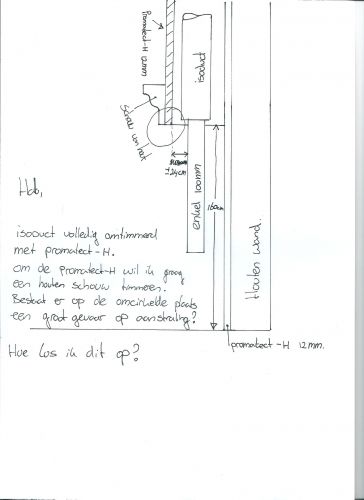 Promatect-H 12mm
isoduct
Schouw van hout
± 24cm
enkel 100mm
160cm
Houten wand.
Hoi,
isoduct volledig omtimmerd
met promatect-H.
om de Promatect-H wil ik graag
een houten schouw timmeren.
Bestaat er op de omcirkelde plaats
een groot gevaar op aanstraling?
promatect-H 12mm.
Hoe los ik dit op?